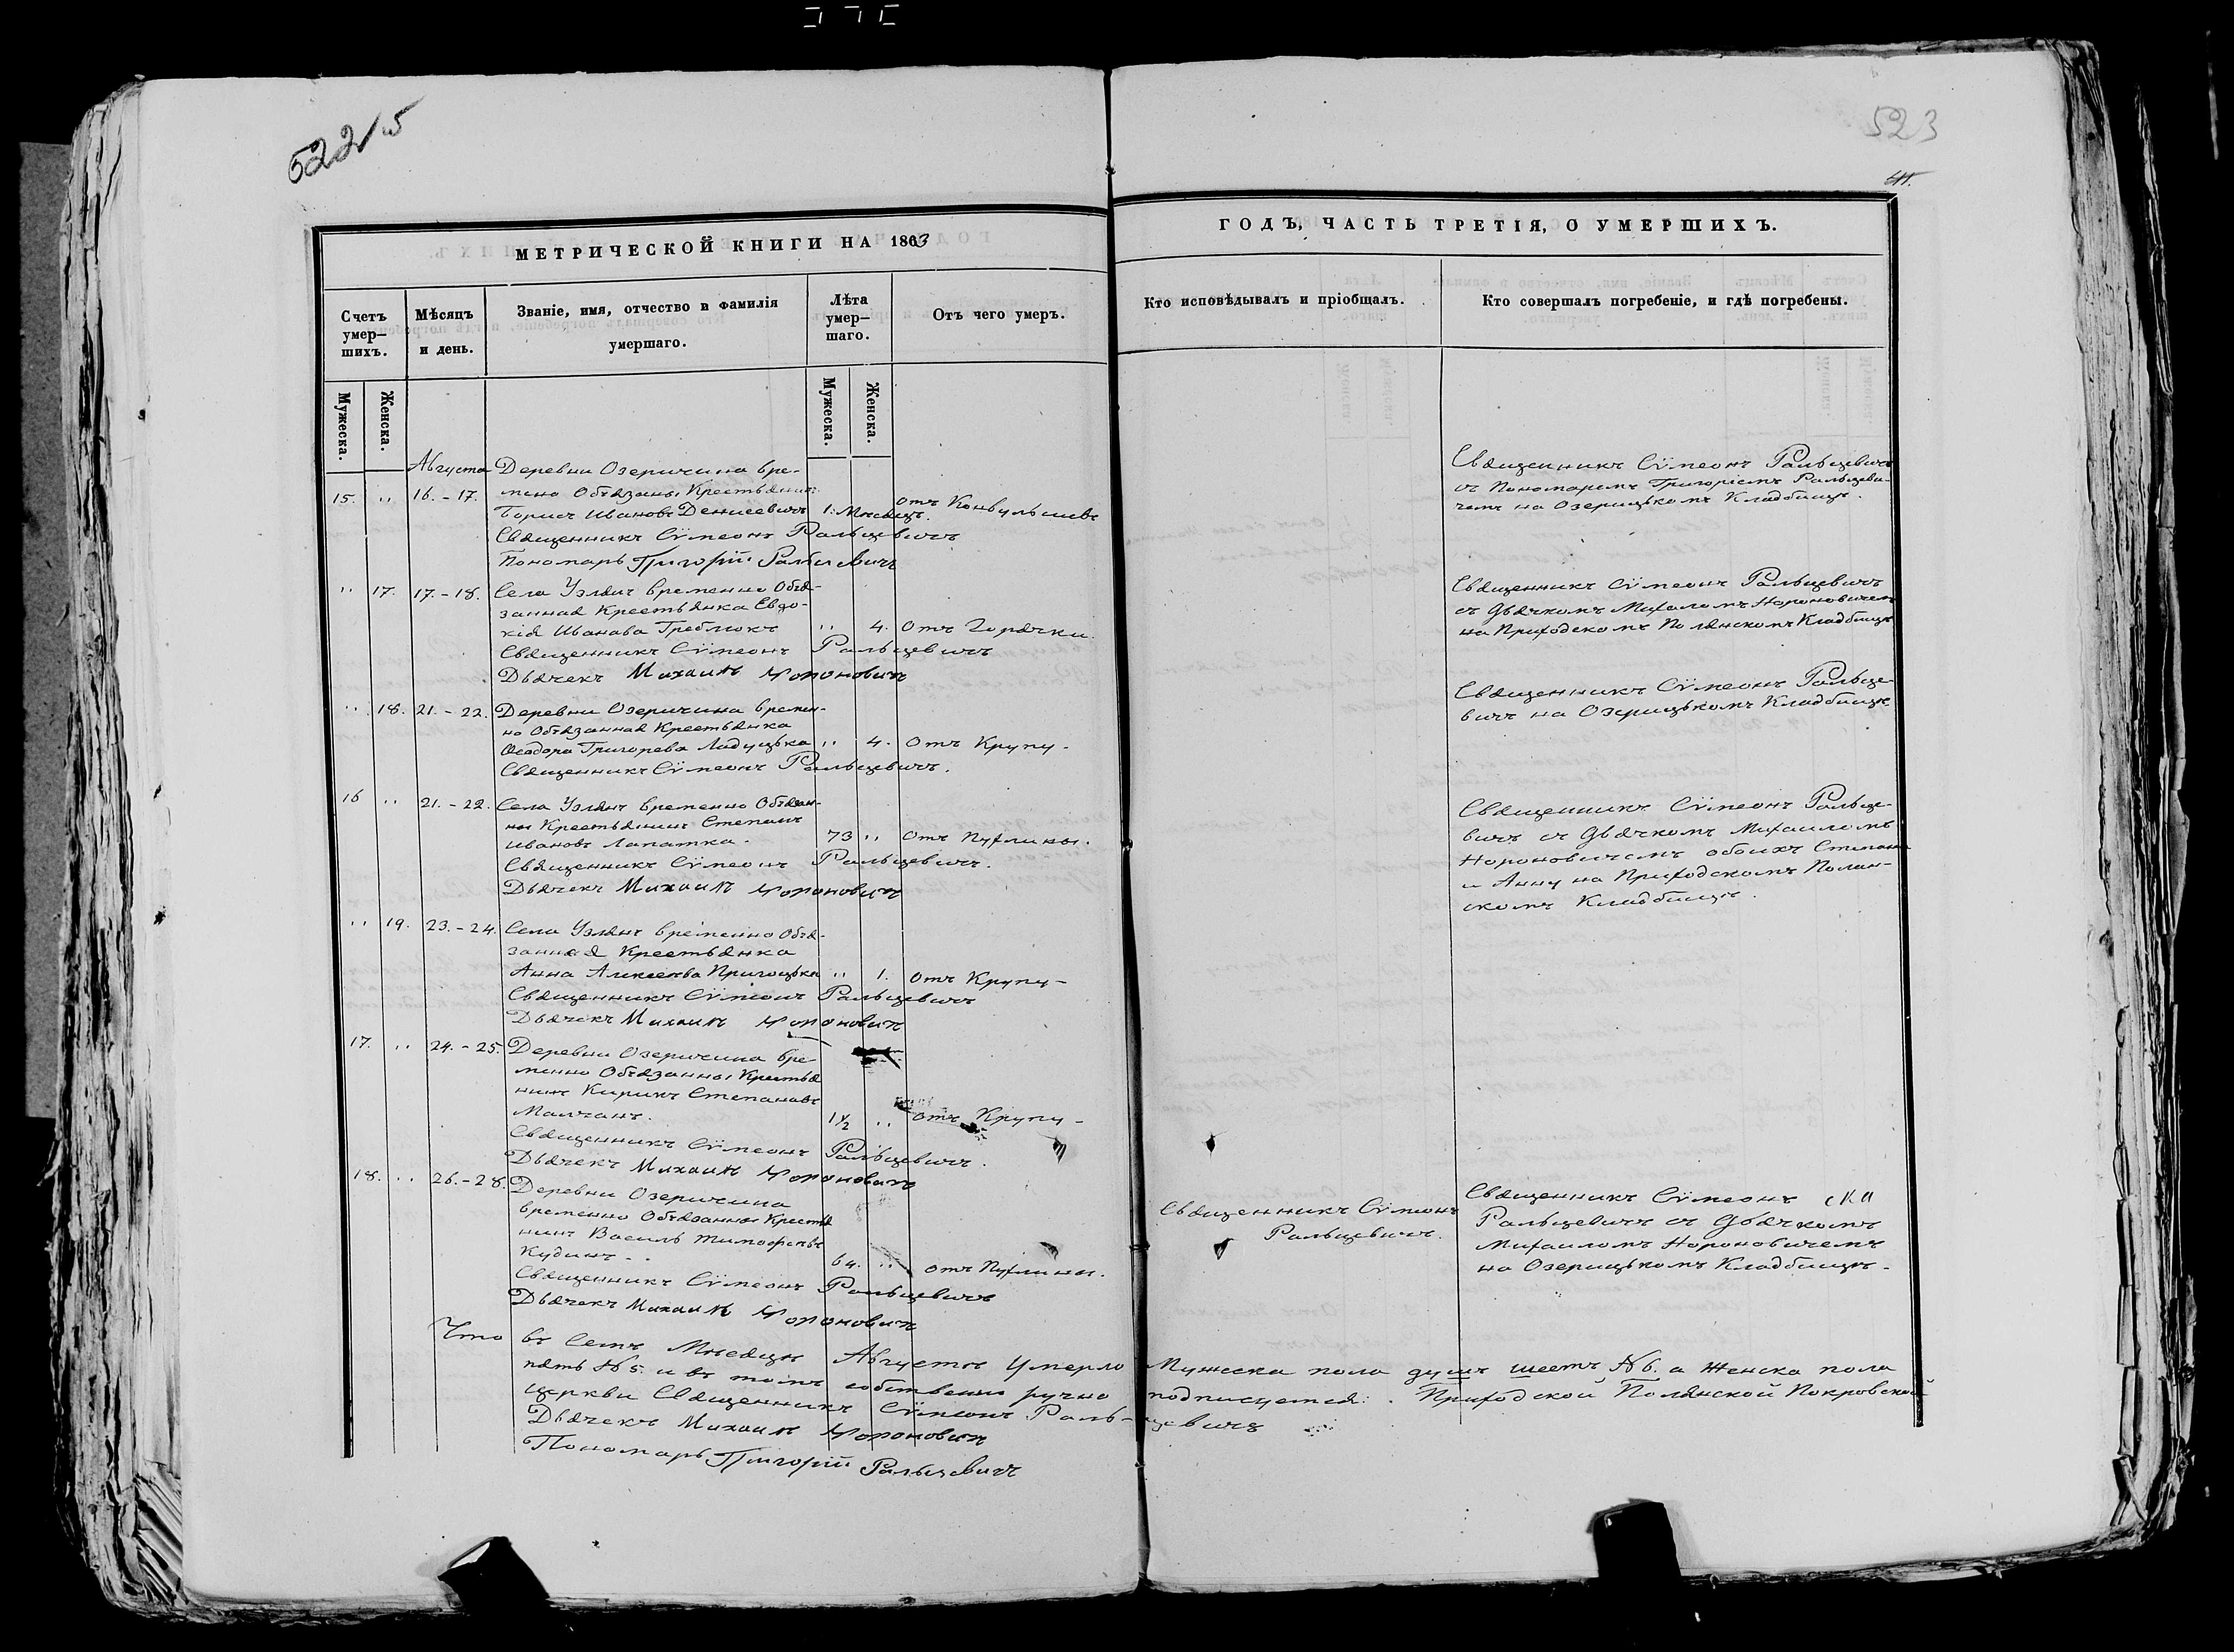 522 1/5
523
МЕТРИЧЕСКОЙ КНИГИ НА 1863
ГОДЪ, ЧАСТЬ ТРЕТІЯ, О УМЕРШИХЪ.
Счетъ умер–шихъ.
Мѣсяцъ и день.
Званіе, имя, отчество и фамилія умершаго.
Лѣта умер–шаго.
Отъ чего умеръ.
Кто исповѣдывалъ и пріобщалъ.
Кто совершалъ погребеніе, и гдѣ погребены.
Мужеска.
Женска.
Мужеска.
Женска.
Августа Деревни Озеричина вре-
15. " 16.-17. менно Обязаны Крестьянинъ
Борисъ Ивановъ Денисевичъ 1: Мѣсяцъ. отъ Конвульсиевъ
Священникъ Сѵмеонъ Ральцевичъ
Пономарь Григорій Ральцевичъ
Священникъ Сѵмеонъ Ральцевичъ
съ Пономаремъ Григоріемъ Ральцеви-
чемъ на Озерицькомъ Кладбищѣ.
" 17. 17.-18. Села Узлянъ временно Обя-
занная Крестьянка Евдо-
кія Иванова Греблюкъ " 4. Отъ Горячки.
Священникъ Сѵмеонъ Ральцевичъ
Дьячекъ Михаилъ Нороновичъ
Священникъ Сѵмеонъ Ральцевичъ
съ Дьячкомъ Михаломъ Нороновичемъ
на Приходскомъ Полянскомъ Кладбищѣ
" 18. 21.-22. Деревни Озеричина времен-
но Обязанная Крестьянка
Ѳеодора Григорева Ладуцька " 4. Отъ Крупу-
Священникъ Сѵмеонъ Ральцевичъ.
Священникъ Сѵмеонъ Ральце-
вичъ на Озерицькомъ Кладбищѣ
16 " 21.-22. Села Узлянъ временно Обязан-
ны Крестьянинъ Степанъ
Ивановъ Лапатка. 73 " Отъ Пухлины.
Священникъ Сѵмеонъ Ральцевичъ.
Дьячекъ Михаилъ Нороновичъ
Священникъ Сѵмеонъ Ральце-
вичъ съ Дьячкомъ Михаиломъ
Нороновичемъ обоихъ Степана
и Анну на Приходскомъ Полян-
скомъ Кладбищѣ.
" 19. 23.-24. Села Узлянъ временно Обя-
занная Крестьянка
Анна Алексеева Пригоцька " 1. Отъ Крупу-
Священникъ Сѵмеонъ Ральцевичъ
Дьячекъ Михаилъ Нороновичъ
17. " 24.-25. Деревни Озеричина вре-
менно Обязанны Крестья
нинъ Кирикъ Степановъ
Малчанъ. 1 1/2 " отъ Крупу-
Священникъ Сѵмеонъ Ральцевичъ.
Дьячекъ Михаилъ Нороновичъ
18. " 26.-28. Деревни Озеричина
временно Обязанны Крестья
нинъ Василь Тимофеевъ
Кудинъ. 64. " отъ Пухлины.
Священникъ Сѵмеонъ Ральцевичъ
Дьячекъ Михаилъ Нороновичъ
Священникъ Сѵмеонъ
Ральцевичъ.
Священникъ Сѵмеонъ
Ральцевичъ съ Дьячкомъ
Михаиломъ Нороновичемъ
на Озерицькомъ Кладбищѣ.
Что въ Семъ Мѣсяцѣ Августѣ Умерло Мужеска пола душъ шесть № 6. а Женска пола
пять № 5. и въ томъ собственно ручно подписуемся: Приходской Полянской Покровской
Церкви Священникъ Сѵмеонъ Раль-цевичъ
Дьячекъ Михаилъ Нороновичъ
Пономарь Григорій Ральцевичъ